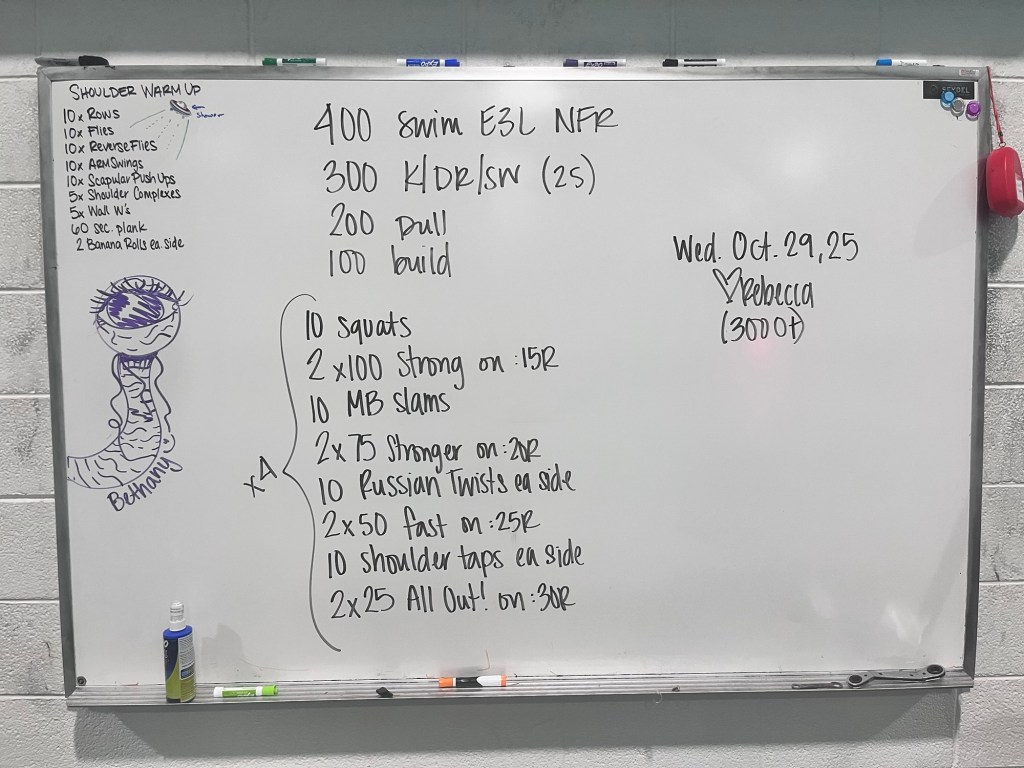 SHOULDER WARM UP
10x Rows
10x Flies
10x Reverse Flies
10x ARM Swings
10x Scapular Push Ups
5x Shoulder Complexes
5x Wall W's
60 sec. plank
2 Banana Rolls ea. side
Shower
Bethany
400 swim E3L NFR
300 K/DR/SW (25)
200 pull
100 build
x4
10 squats
2x100 Strong on :15R
10 MB slams
2x75 Stronger on :20R
10 Russian Twists ea side
2x50 fast on :25R
10 shoulder taps ea side
2x25 All Out! on :30R
Wed. Oct. 29, 25
♡Rebecca
(3000t)
EXPO